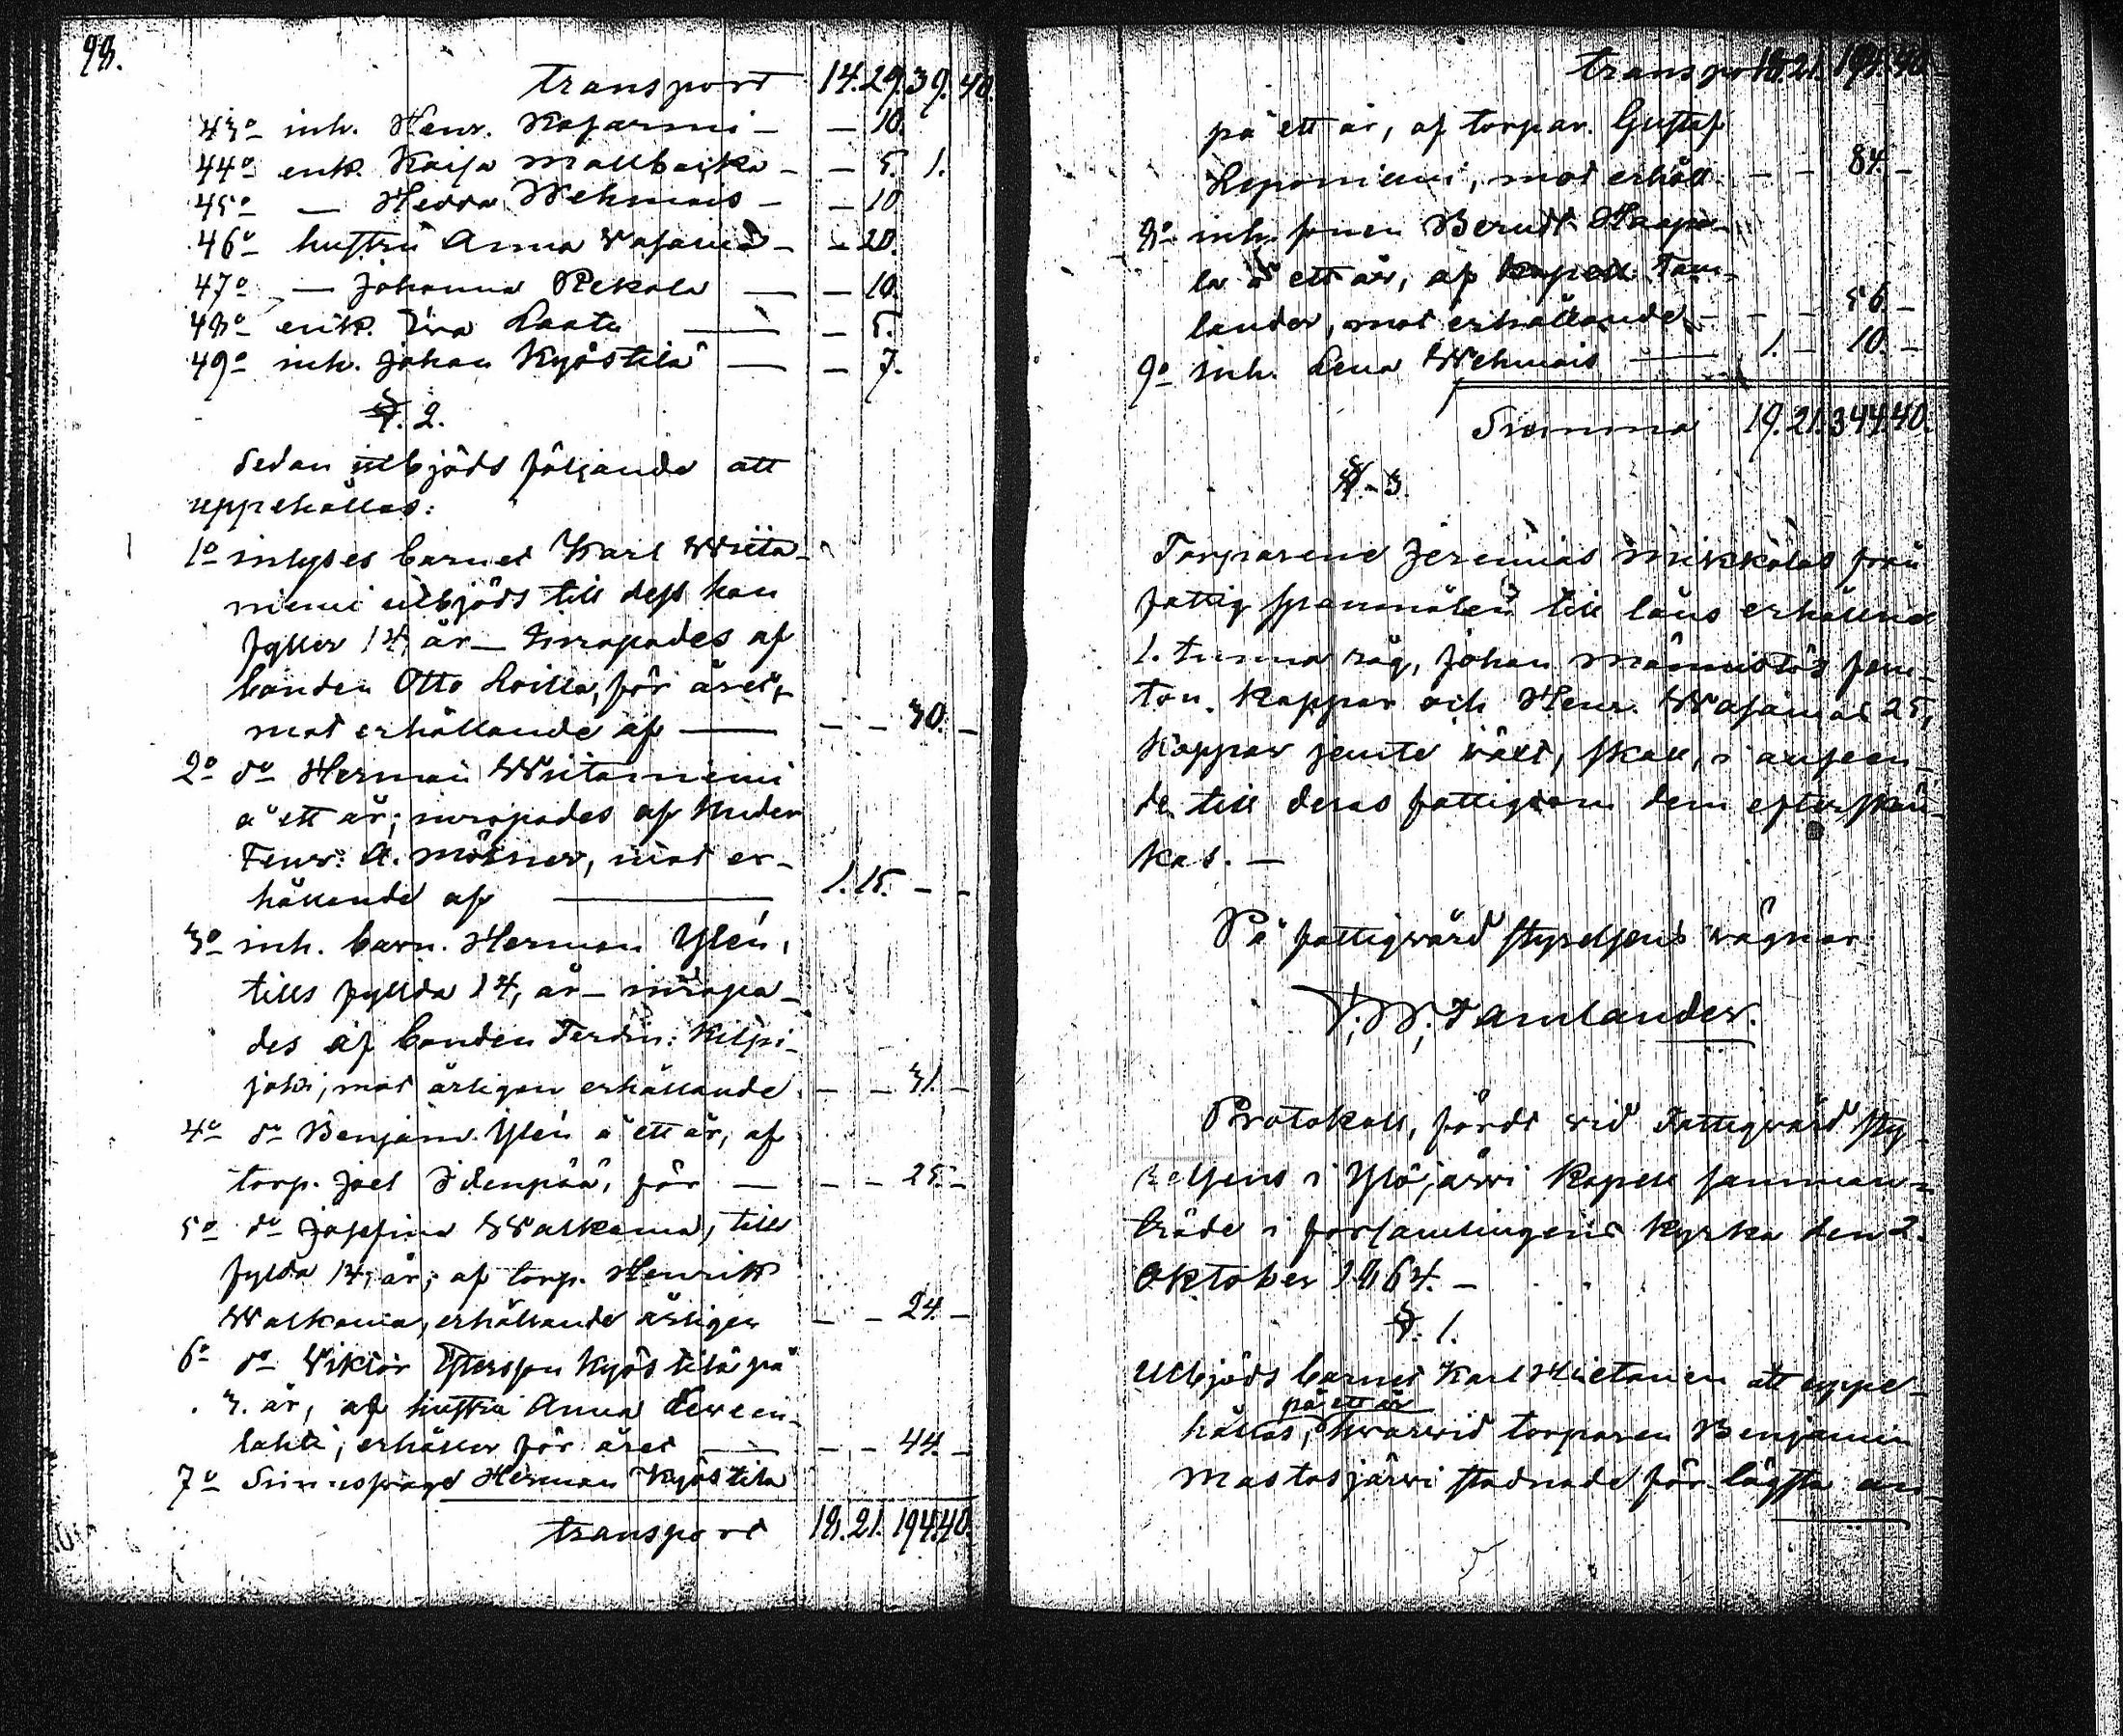 98.
transport 14.29.39.40.
43o inh. Henr. Kajarmi - - 10.
44o enk. Kaisa Mattbacka - - 5. 1.
45o — Hedda Wehmais - - 10
46o hustru Anna Wasama - - 20.
47o — Johanna Pekala — - 10.
48o enk. Eva Laatu — - 5.
49o inh. Johan Kyöstilä — - 7.
§. 2.
Sedan utbjöds följande att
uppehållas:
1o inhyses barnet Karl Wiita-
niemi utbjöds till dess han
fyller 14 år — inropades af
bonden Otto Loilla, för året,
mot erhållande af — - - 30. -
2o do Herman Wiitaniemi
å ett år; inropades af Under
Fenr: A. Mörner, mot er-
hållande af — 1. 15. - -
3o inh. barn. Herman Ylén,
tills fyllda 14, år — inropa-
des af bonden Ferdin: Kilpi-
joki; mot årligen erhållande - - 31. -
4o do Benjam. Ylén å ett år, af
torp. Joel Idenpää, för — - - 25. -
5o do Josefina Walkama, till
fylda 14, år; af torp. Henrik
Walkama, erhållande årligen - - 24. -
6o do Viktor Petersson Kyöstilä på
3. år, af hustru Anna Leveen-
lahti, erhåller för året — - - 44. -
7o Sinnesswage Herman Kyöstilä
transport 18. 21. 194.40.
transport 18.21. 194.40.
på ett år, af torpar. Gustaf
Leponiemi, mot erhåll. - - 84. -
8o inh. sonen Berndt Haapa-
la å ett år, af kapell. Tam-
lander, mot erhållande - - - 56. -
9o inh. Lena Wehmais — 1. - 10. -
Summa 19.21.344.40.
§. 3.
Torparene Jeremias Mikkolas från
fattig spanmålen till låns erhållna
1. tunna råg, Johan Männistös fem-
ton. Kappar och Henr. Wasamas 25,
Kappar jemte växt, skall, i anseen-
de till deras fattigdom dem efterskän-
kas. —
På fattigvård styrelsens vägnar:
F. W. Tamlander.
Protokoll, fördt vid Fattigvård sty-
relsens i Ylöjärvi Kapell samman-
träde i församlingens Kyrka den 2.
Oktober 1864. —
§. 1.
Utbjöds barnet Karl Hietanen att uppe-
på ett år
hållas, hvarvid torparen Benjamin
Mastosjärvi stadnade för lägsta an-
transport